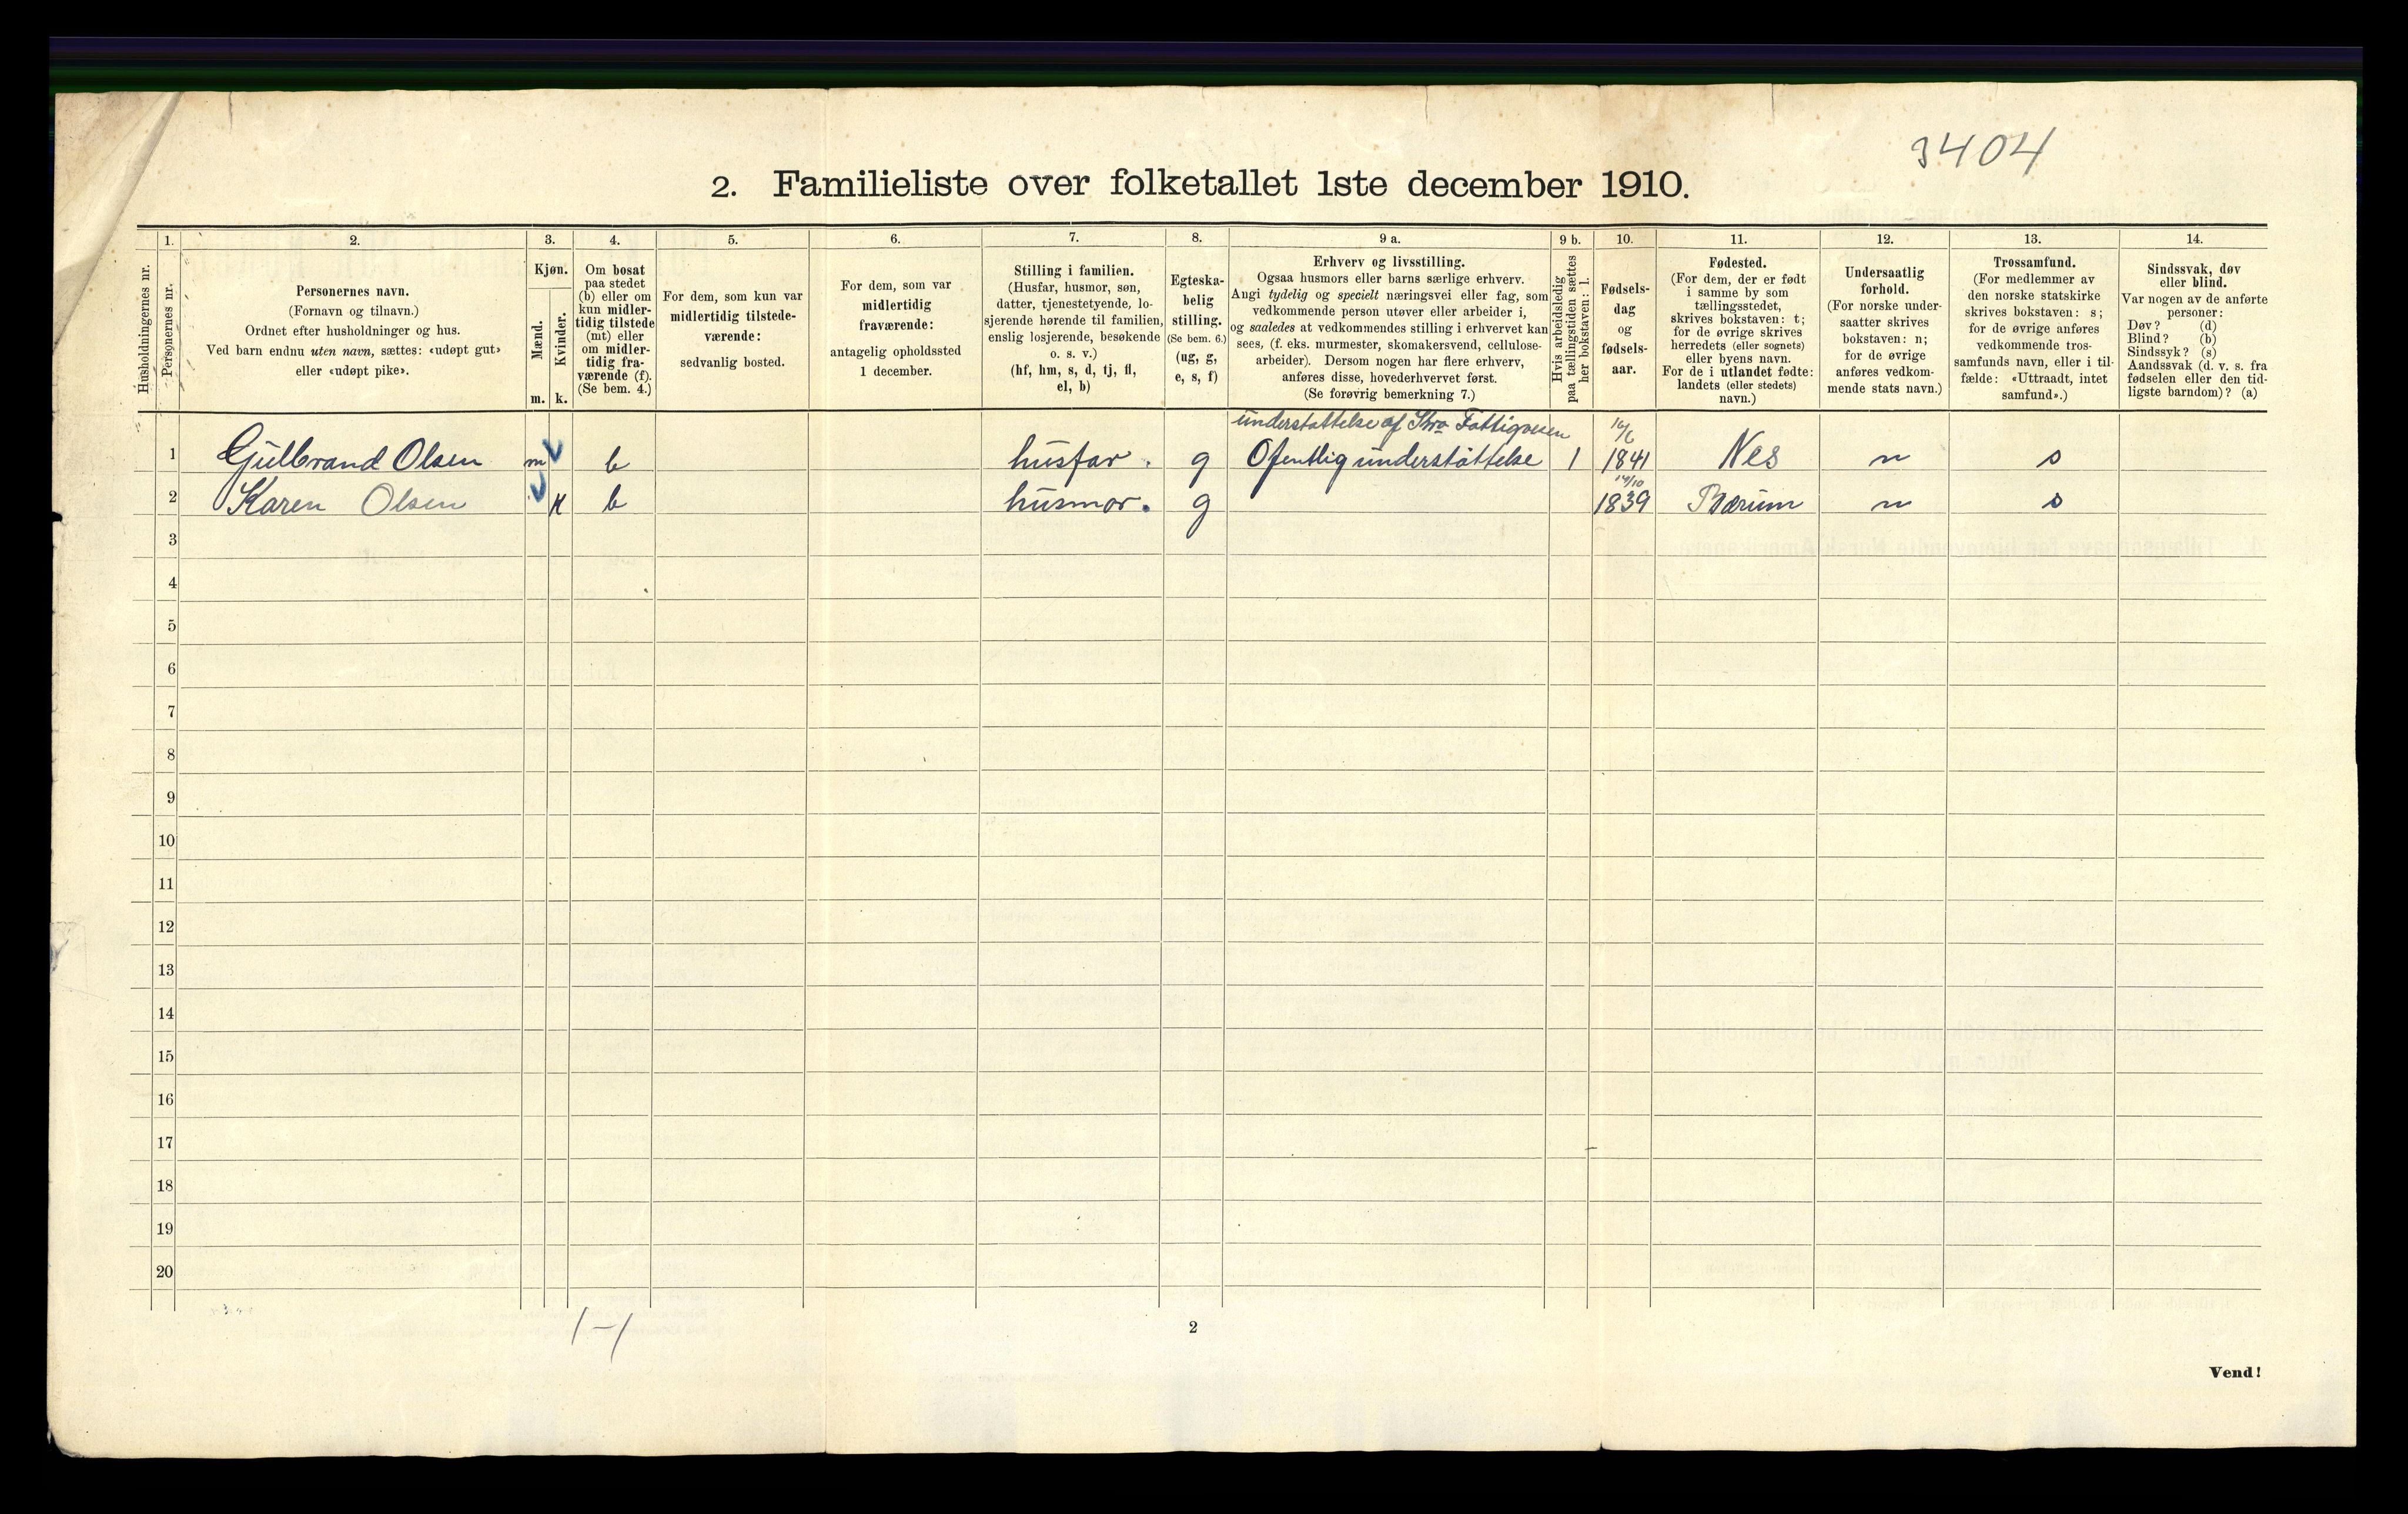 3404
2. Familieliste over folketallet 1ste december 1910.
Husholdningernes nr.
1.
Personernes nr.
2.
Personernes navn.
(Fornavn og tilnavn.)
Ordnet efter husholdninger og hus.
Ved barn endnu uten navn, sættes: «udøpt gut»
eller «udøpt pike».
3.
Kjøn.
Mænd.
Kvinder.
m. k.
4.
Om bosat
paa stedet
(b) eller om
kun midler-
tidig tilstede
(mt) eller
om midler-
tidig fra-
værende (f).
(Se bem. 4.)
5.
For dem, som kun var
midlertidig tilstede-
værende:
sedvanlig bosted.
6.
For dem, som var
midlertidig
fraværende:
antagelig opholdssted
1 december.
7.
Stilling i familien.
(Husfar, husmor, søn,
datter, tjenestetyende, lo-
sjerende hørende til familien,
enslig losjerende, besøkende
o. s. v.)
(hf, hm, s, d, tj, fl,
el, b)
8.
Egteska-
belig
stilling.
(Se bem. 6.)
(ug, g,
e, s, f)
9 a.
Erhverv og livsstilling.
Ogsaa husmors eller barns særlige erhverv.
Angi tydelig og specielt næringsvei eller fag, som
vedkommende person utøver eller arbeider i,
og saaledes at vedkommendes stilling i erhvervet kan
sees, (f. eks. murmester, skomakersvend, cellulose-
arbeider). Dersom nogen har flere erhverv,
anføres disse, hovederhvervet først.
(Se forøvrig bemerkning 7.)
9 b.
Hvis arbeidsledig
paa tællingstiden sættes
her bokstaven: l.
10.
Fødsels-
dag
og
fødsels-
aar.
11.
Fødested.
(For dem, der er født
i samme by som
tællingsstedet,
skrives bokstaven: t;
for de øvrige skrives
herredets (eller sognets)
eller byens navn.
For de i utlandet fødte:
landets (eller stedets)
navn.)
12.
Undersaatlig
forhold.
(For norske under-
saatter skrives
bokstaven: n;
for de øvrige
anføres vedkom-
mende stats navn.)
13.
Trossamfund.
(For medlemmer av
den norske statskirke
skrives bokstaven: s;
for de øvrige anføres
vedkommende tros-
samfunds navn, eller i til-
fælde: «Uttraadt, intet
samfund».)
14.
Sindssvak, døv
eller blind.
Var nogen av de anførte
personer:
Døv? (d)
Blind? (b)
Sindssyk? (s)
Aandssvak (d. v. s. fra
fødselen eller den tid-
ligste barndom)? (a)
understøttelse af Fattigvesen
1 Gulbrand Olsen m b husfar. g Ofentlig understøttelse l 1841 Nes n s
14/10
2 Karen Olsen k b husmor. g 1839 Bærum n s
3
4
5
6
7
8
9
10
11
12
13
14
15
16
17
18
19
20
1-1
2
Vend!